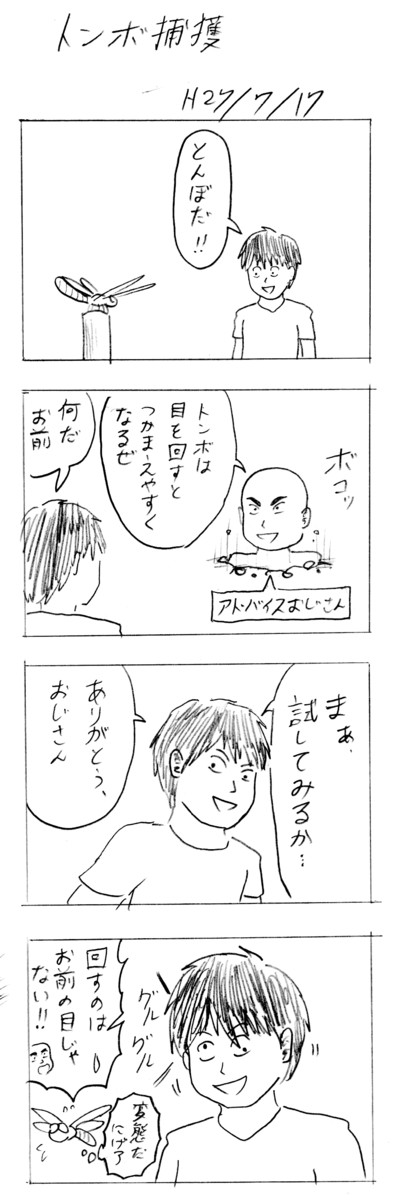 トンボ捕獲
H27/7/17
とんぼだ!!
ボコッ
トンボは
目を回すと
つかまえやすく
なるぜ
アドバイスおじさん
何だ
お前
まぁ、
試してみるか…
ありがとう、
おじさん
グルグル
回すのは
お前の目じゃ
ない!!
変態だ
にげろ